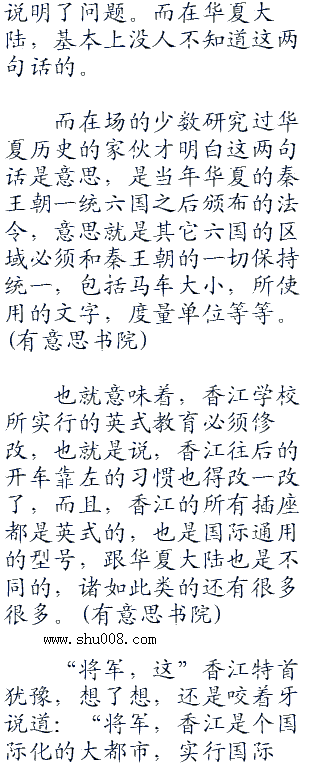 说明了问题。而在华夏大
陆，基本上没人不知道这两
句话的。
而在场的少数研究过华
夏历史的家伙才明白这两句
话是意思，是当年华夏的秦
王朝一统六国之后颁布的法
令，意思就是其它六国的区
域必须和秦王朝的一切保持
统一，包括马车大小，所使
用的文字，度量单位等等。
(有意思书院)
也就意味着，香江学校
所实行的英式教育必须修
改，也就是说，香江往后的
开车靠左的习惯也得改一改
了，而且，香江的所有插座
都是英式的，也是国际通用
的型号，跟华夏大陆也是不
同的，诸如此类的还有很多
很多。(有意思书院)
www.shu008.com
“将军，这”香江特首
犹豫，想了想，还是咬着牙
说道：“将军，香江是个国
际化的大都市，实行国际